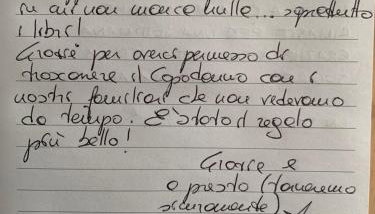 su cui non manca nulla... soprattutto
i libri!
Grazie per averci permesso di
trascorrere il Capodanno con i
nostri familiari che non vedevamo
da tempo. È stato il regalo
più bello!
Grazie e
a presto (torneremo
sicuramente)